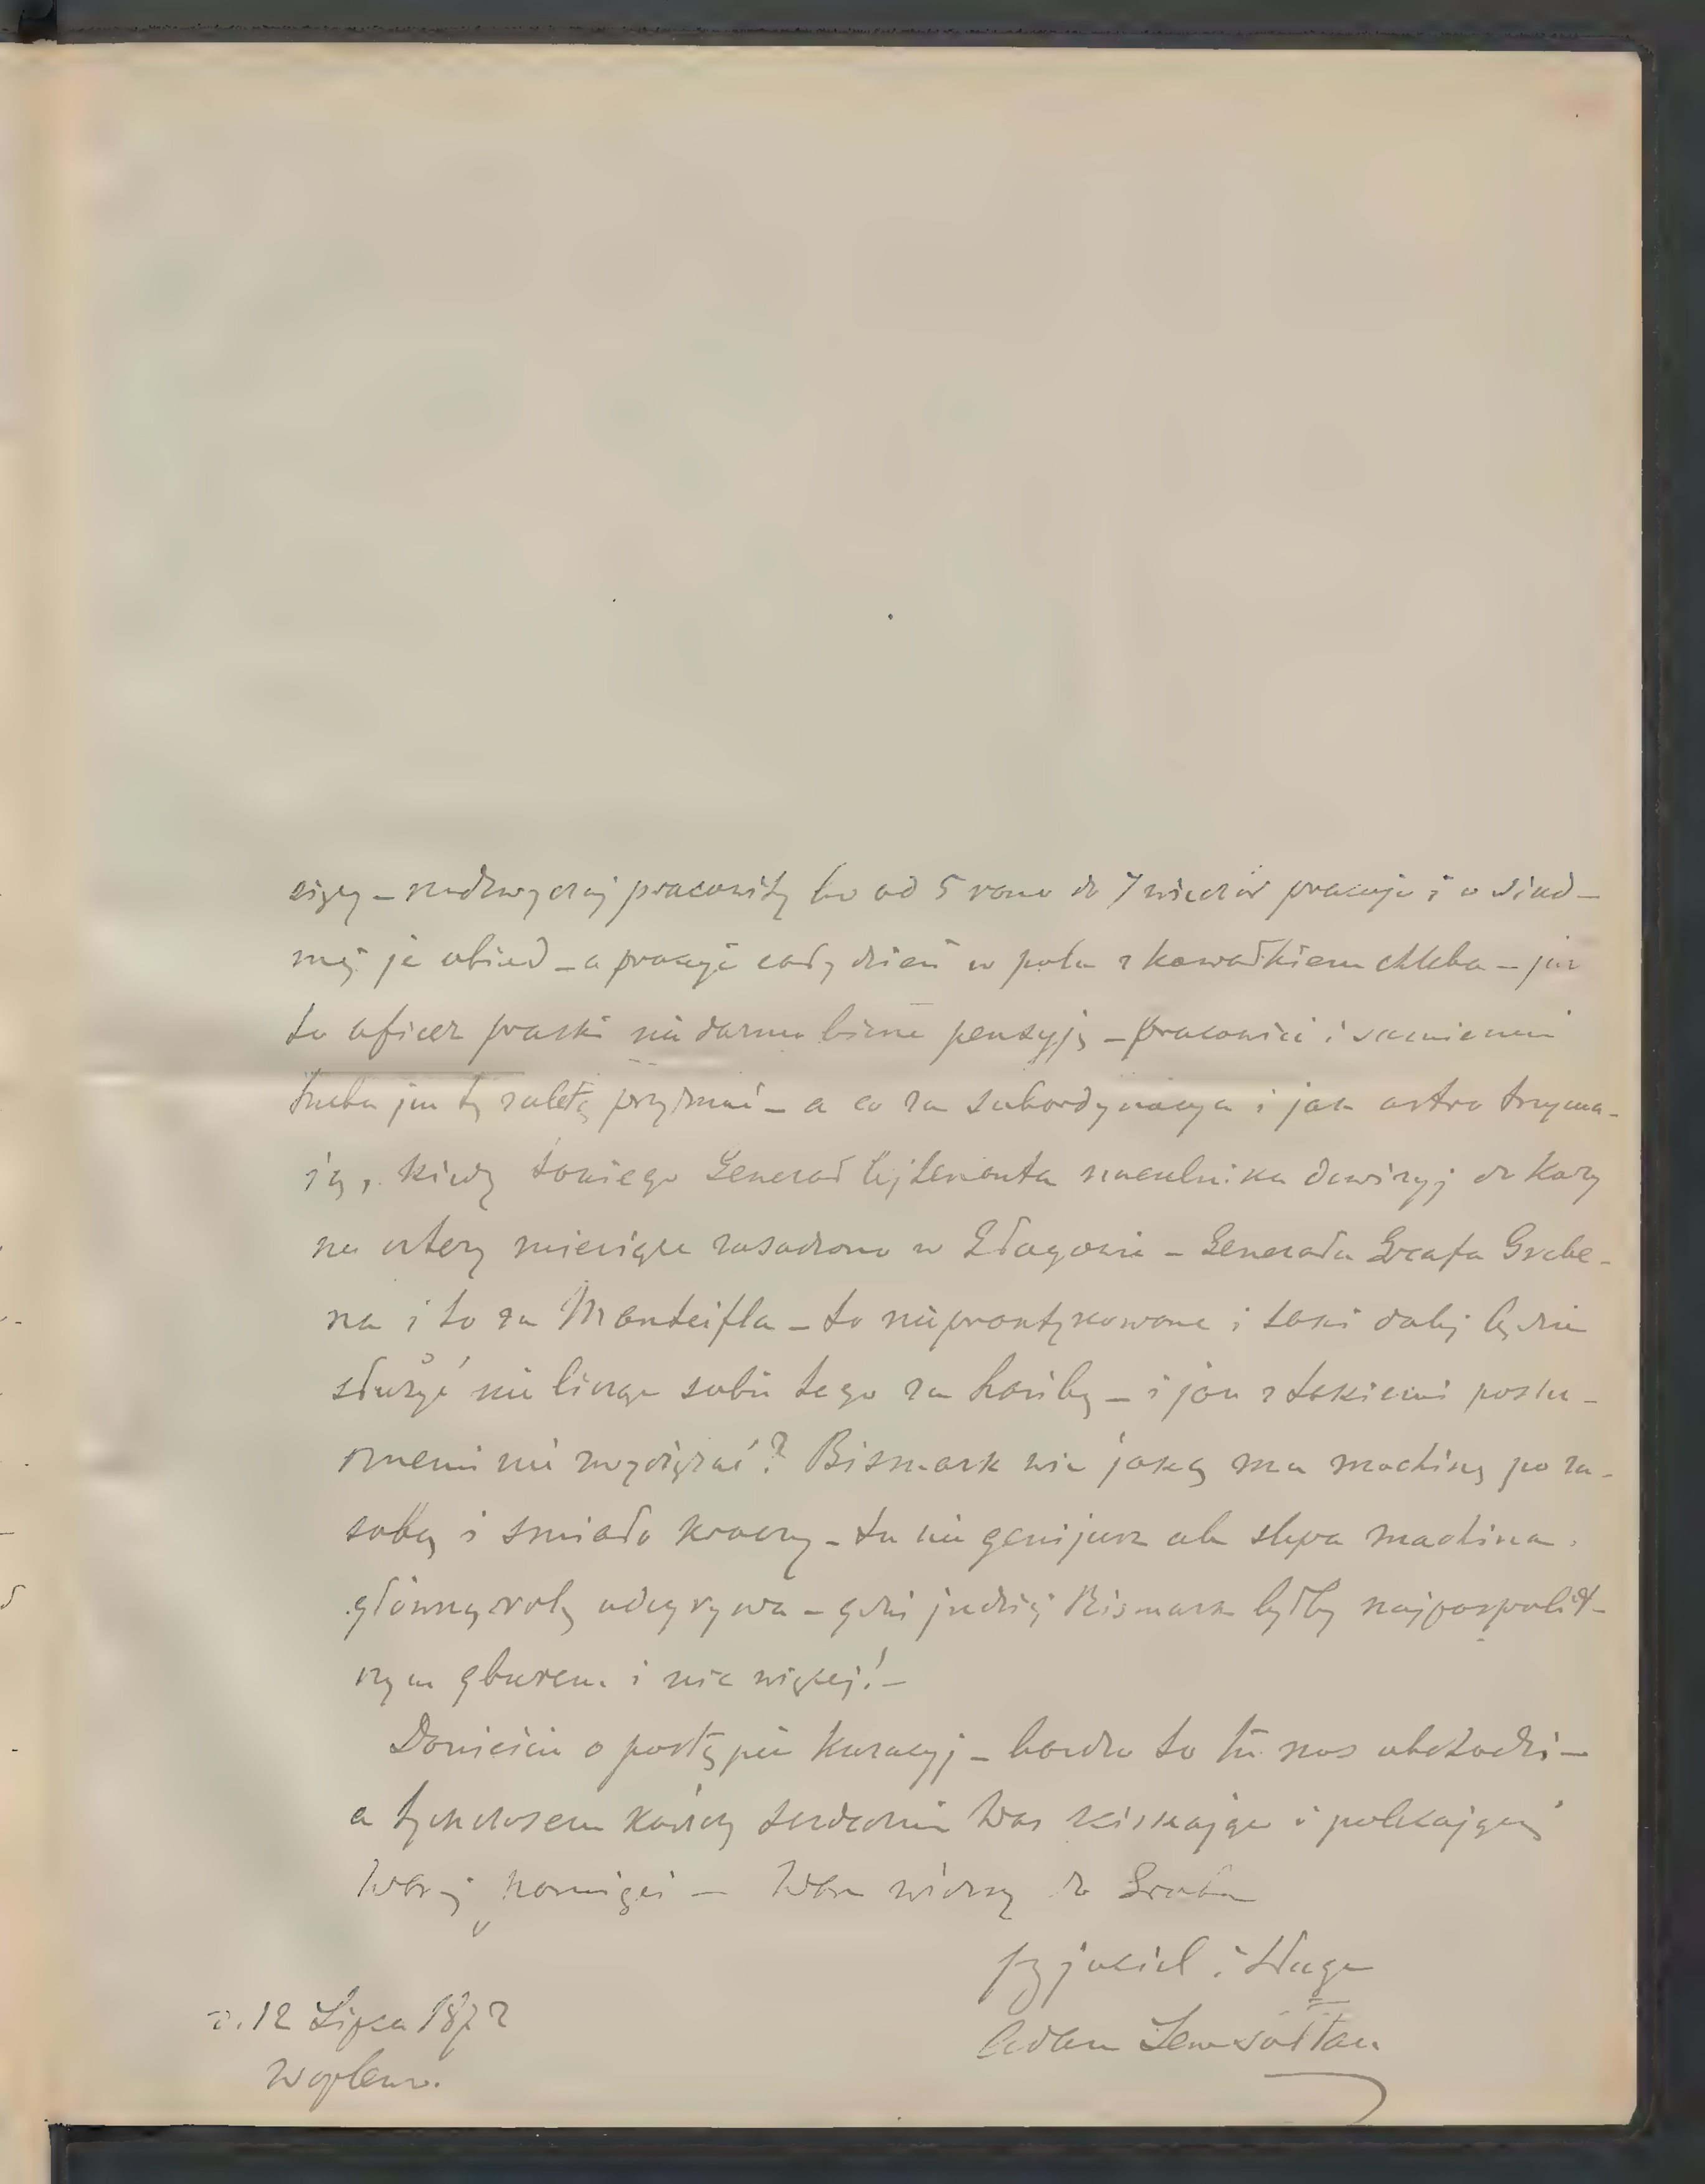 cizcy – nadzwyczaj pracowity bo od 5 rano do 7 wieczór pracuje i o siód-
mej je obiad – a pracuje cały dzień w polu z kawałkiem chleba – już
to oficer pruski nie darmo bierze pensyją – pracowici i sumienni
trzeba jm tę zaletę przyznać – a co za subordynacya i jak ostro trzyma-
ją, kiedy takiego Generał Lejtenanta naczelnika dewizyj do kozy
na cztery miesiące zasadzono w Głogowie – Generała Grafa Grebe-
na i to za Manteifla – to niepraktykowane i taki dalej będzie
służyć nie licząc sobie tego za hańbę – i jak z takiemi posłu-
sznemi nie zwyciężać? Bismark wie jaką ma machinę po za-
sobą i śmiało kroczy – tu nie genijusz ale slepa machina
główną rolę odegrywa – gdzie jndziej Bismark byłby najpospolit-
szym gburem i nic więcej! –
Donieście o postępie kuracyj – bardzo to tu nas obchodzi –
a tymczasem kończę serdecznie Was sciskając i polecając się
Waszej pamięci – Wam wierny do Grobu
przyjaciel i sługa
Adam Lew Sołtan
d. 12 Lipca 1872
Woplewo.